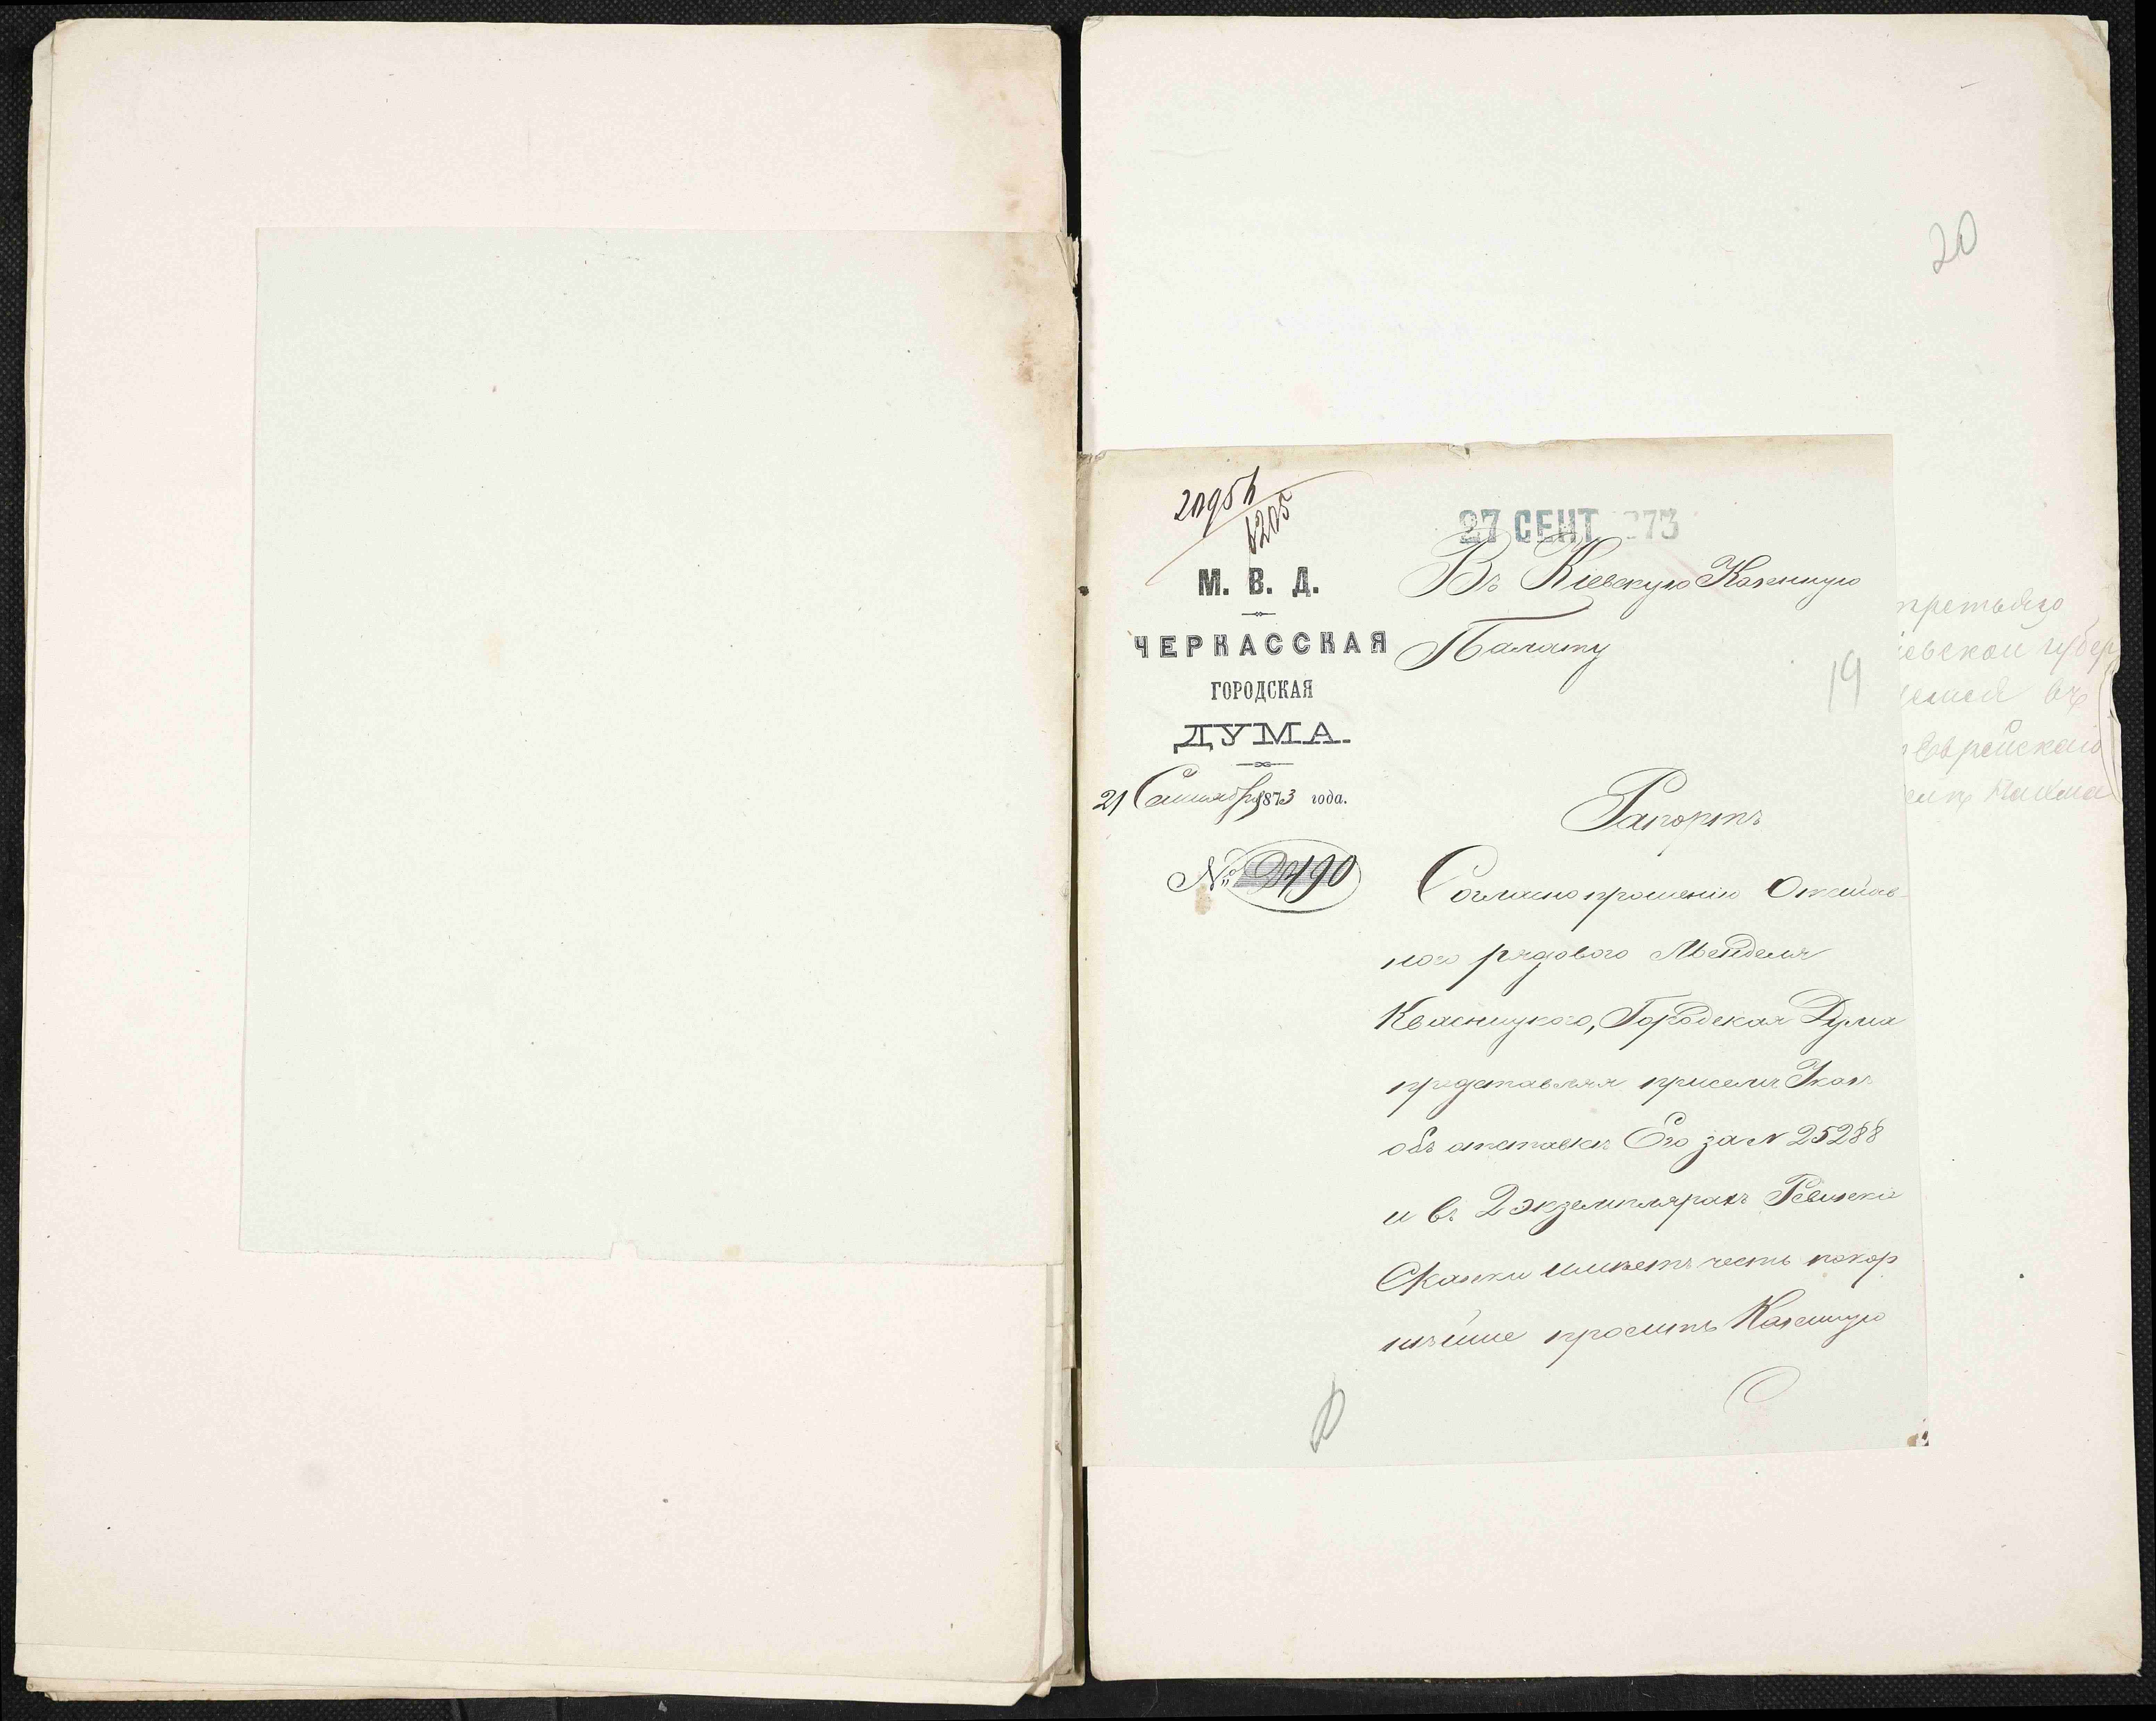 20
20956
8205
27 СЕНТ 1873
М. В. Д.
ЧЕРКАССКАЯ
ГОРОДСКАЯ
ДУМА.
21 Сентября 1873 года.
№ 2490
Въ Кіевскую Казенную
Палату
19
Рапортъ
Согласно прошенію Отстав-
ного рядового Менделя
Квасницкого, Городская Дума
представляя присемъ Указъ
объ отставкѣ Его за № 25288
и въ 2 экземплярахъ Ревизскія
Сказки имѣетъ честь покор
нѣйше просить Казенную
третьяго
іевской губер
въ
Еврейскаго